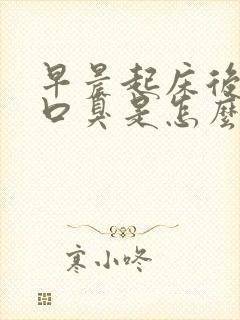 早晨起床後
口臭是怎麼
寒小咚